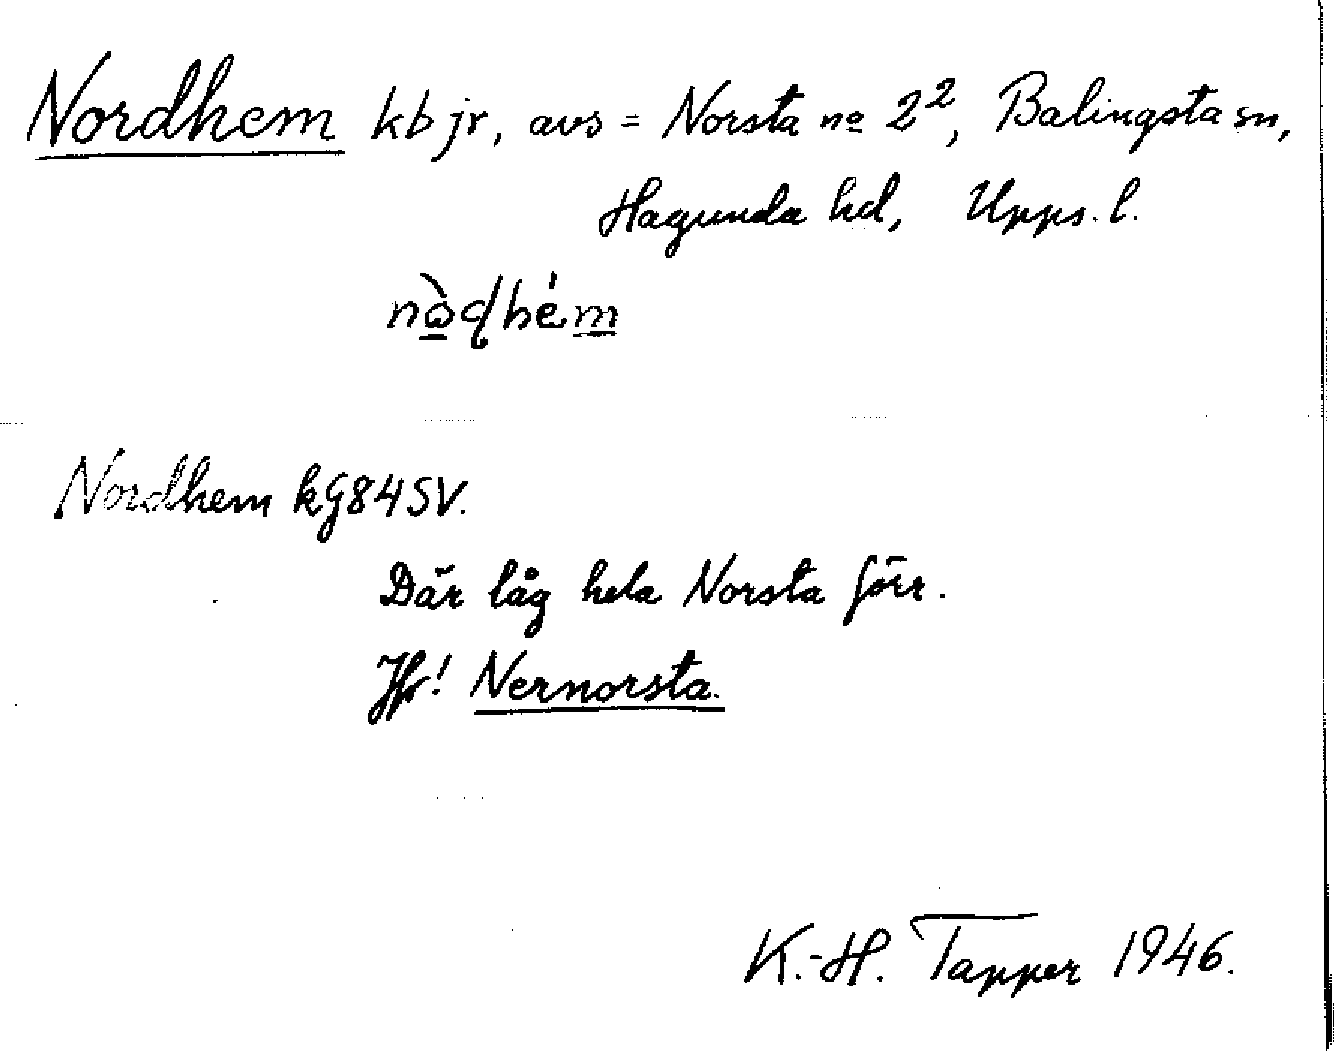 Nordhem kb jr, avs = Norsta nº 2², Balingsta sn,
Hagunda hd, Upps. l.
Nordhem kG84SV.
Där låg hela Norsta förr.
Jfr! Nernorsta.
K.-H. Tapper 1946.